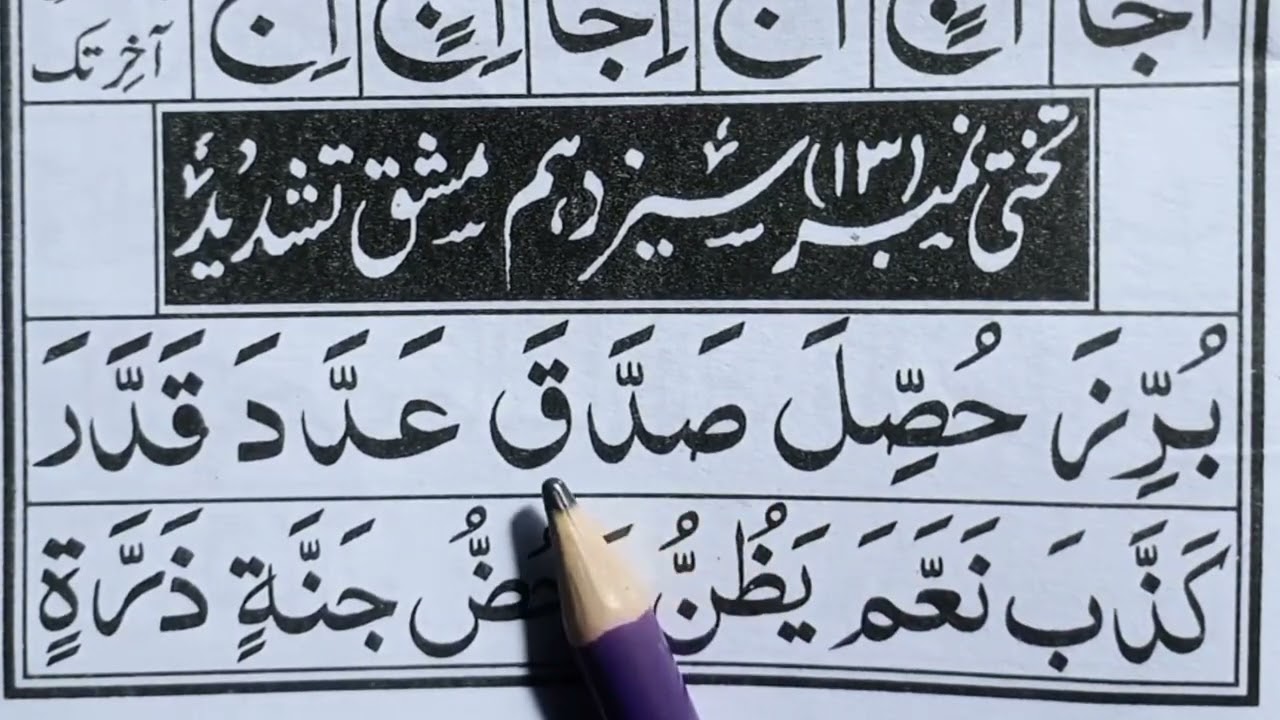 آخِر تک
تختی نمبر (۱۳) سیزدہم مشق تشدید
بُرِّزَ حُصِّلَ صَدَّقَ عَدَّدَ قَدَّرَ
كَذَّبَ نَعَّمَ يَظُنُّ جَنَّةٍ ذَرَّةٍ